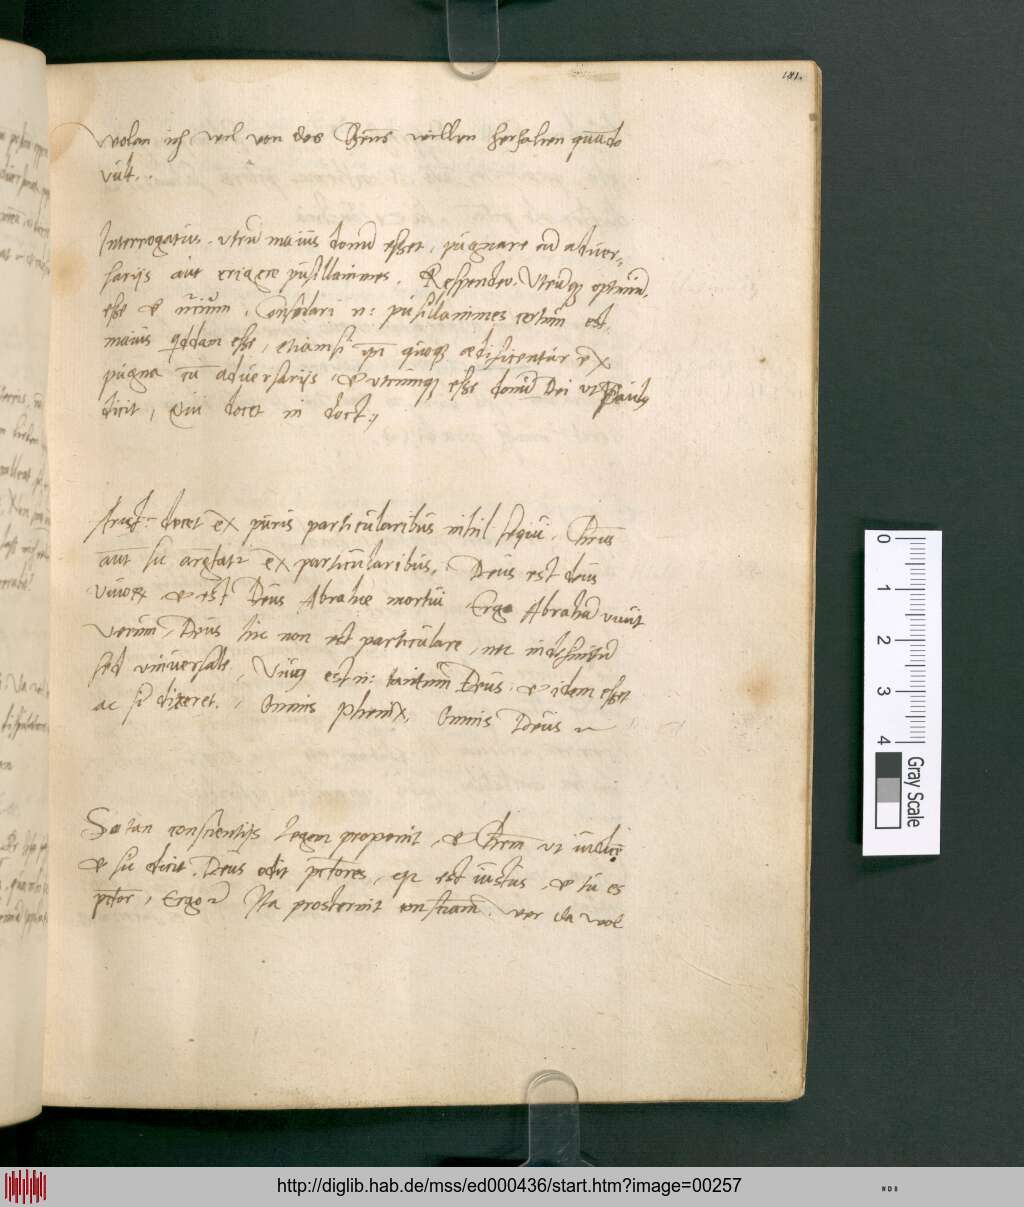 181.
Wolan ich wil von des Chrīs willen herhalten quādo
vult.
Interrogatus, vtrū maius donū esset, pugnare cū aduer-
sarijs aut erigere pusillanimes. Respondeo. Utrūq optimū
esse & nēciūm, Consolari n: pusillanimes tertiū est,
maius qddam esse, etiamsi ipsi quoq ædificentur ex
pugna cū aduersarijs, & vtrūmq esse donū Dei ut Paulus
dicit, Qui docet in doct:
Arist: docet ex puris particularibus nihil sequi. Chrūs
aut sic argtatr ex particularibus, Deus est deus
viuorū & est Deus Abrahæ mortui Ergo Abrahā viuit
Verūm, Deus hic non est particulare, nec indefinitū
sed vniuersale, Vnus est n: tantum Deus, & idem esset
ac si dixeret, Omnis phenix, Omnis Deus
Satan conscientijs Legem proponit, & Chrm ut iudicē
& sic dicit. Deus odit pctores, qr est iustus, & tu es
pctor, Ergo Ita prosternit conscīam. wer da wol
0
1
2
3
4
Gray Scale
http://diglib.hab.de/mss/ed000436/start.htm?image=00257